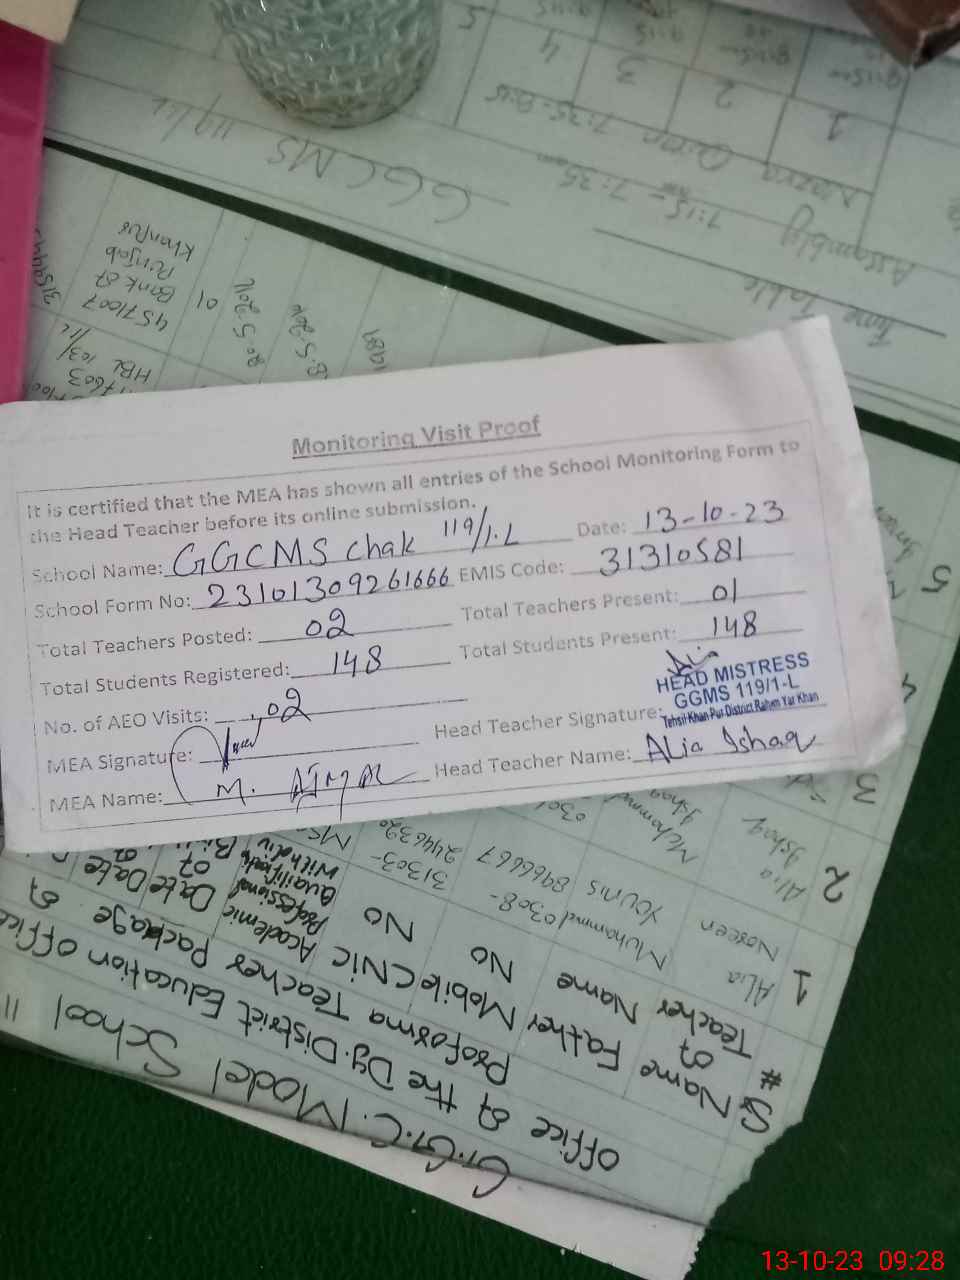 Monitoring Visit Proof
It is certified that the MEA has shown all entries of the School Monitoring Form to
the Head Teacher before its online submission.
School Name: GGCMS Chak 119/1.L Date: 13-10-23
School Form No: 23101309261666 EMIS Code: 31310581
Total Teachers Posted: 02 Total Teachers Present: 01
Total Students Registered: 148 Total Students Present: 148
No. of AEO Visits: 02
HEAD MISTRESS
GGMS 119/1-L
Tehsil Khan Pur District Rahim Yar Khan
MEA Signature: Head Teacher Signature:
MEA Name: M. AJMAL Head Teacher Name: Alia Ishaq
G.G.C. Model School 11
office of the Dy. District Education office
Proforma Teacher Package of
Sr # Name of Teacher Father Name Mobile No CNIC No Academic Professional Qualification Date of Date
1 Alia Noreen Muhammad Younis 0308-8966667 31303-2446320
2 Alia Ishaq Mohammad Ishaq
3
4
5
4571007 Bank of Punjab KhanPur
01
20.5.2016
1981
HBL 103/1L
Time Table
GGCMS 119/1L
Assembly 7:15 - 7:35
Nazra Quran 7:35-8:15
1 2 3 4 5
13-10-23 09:28